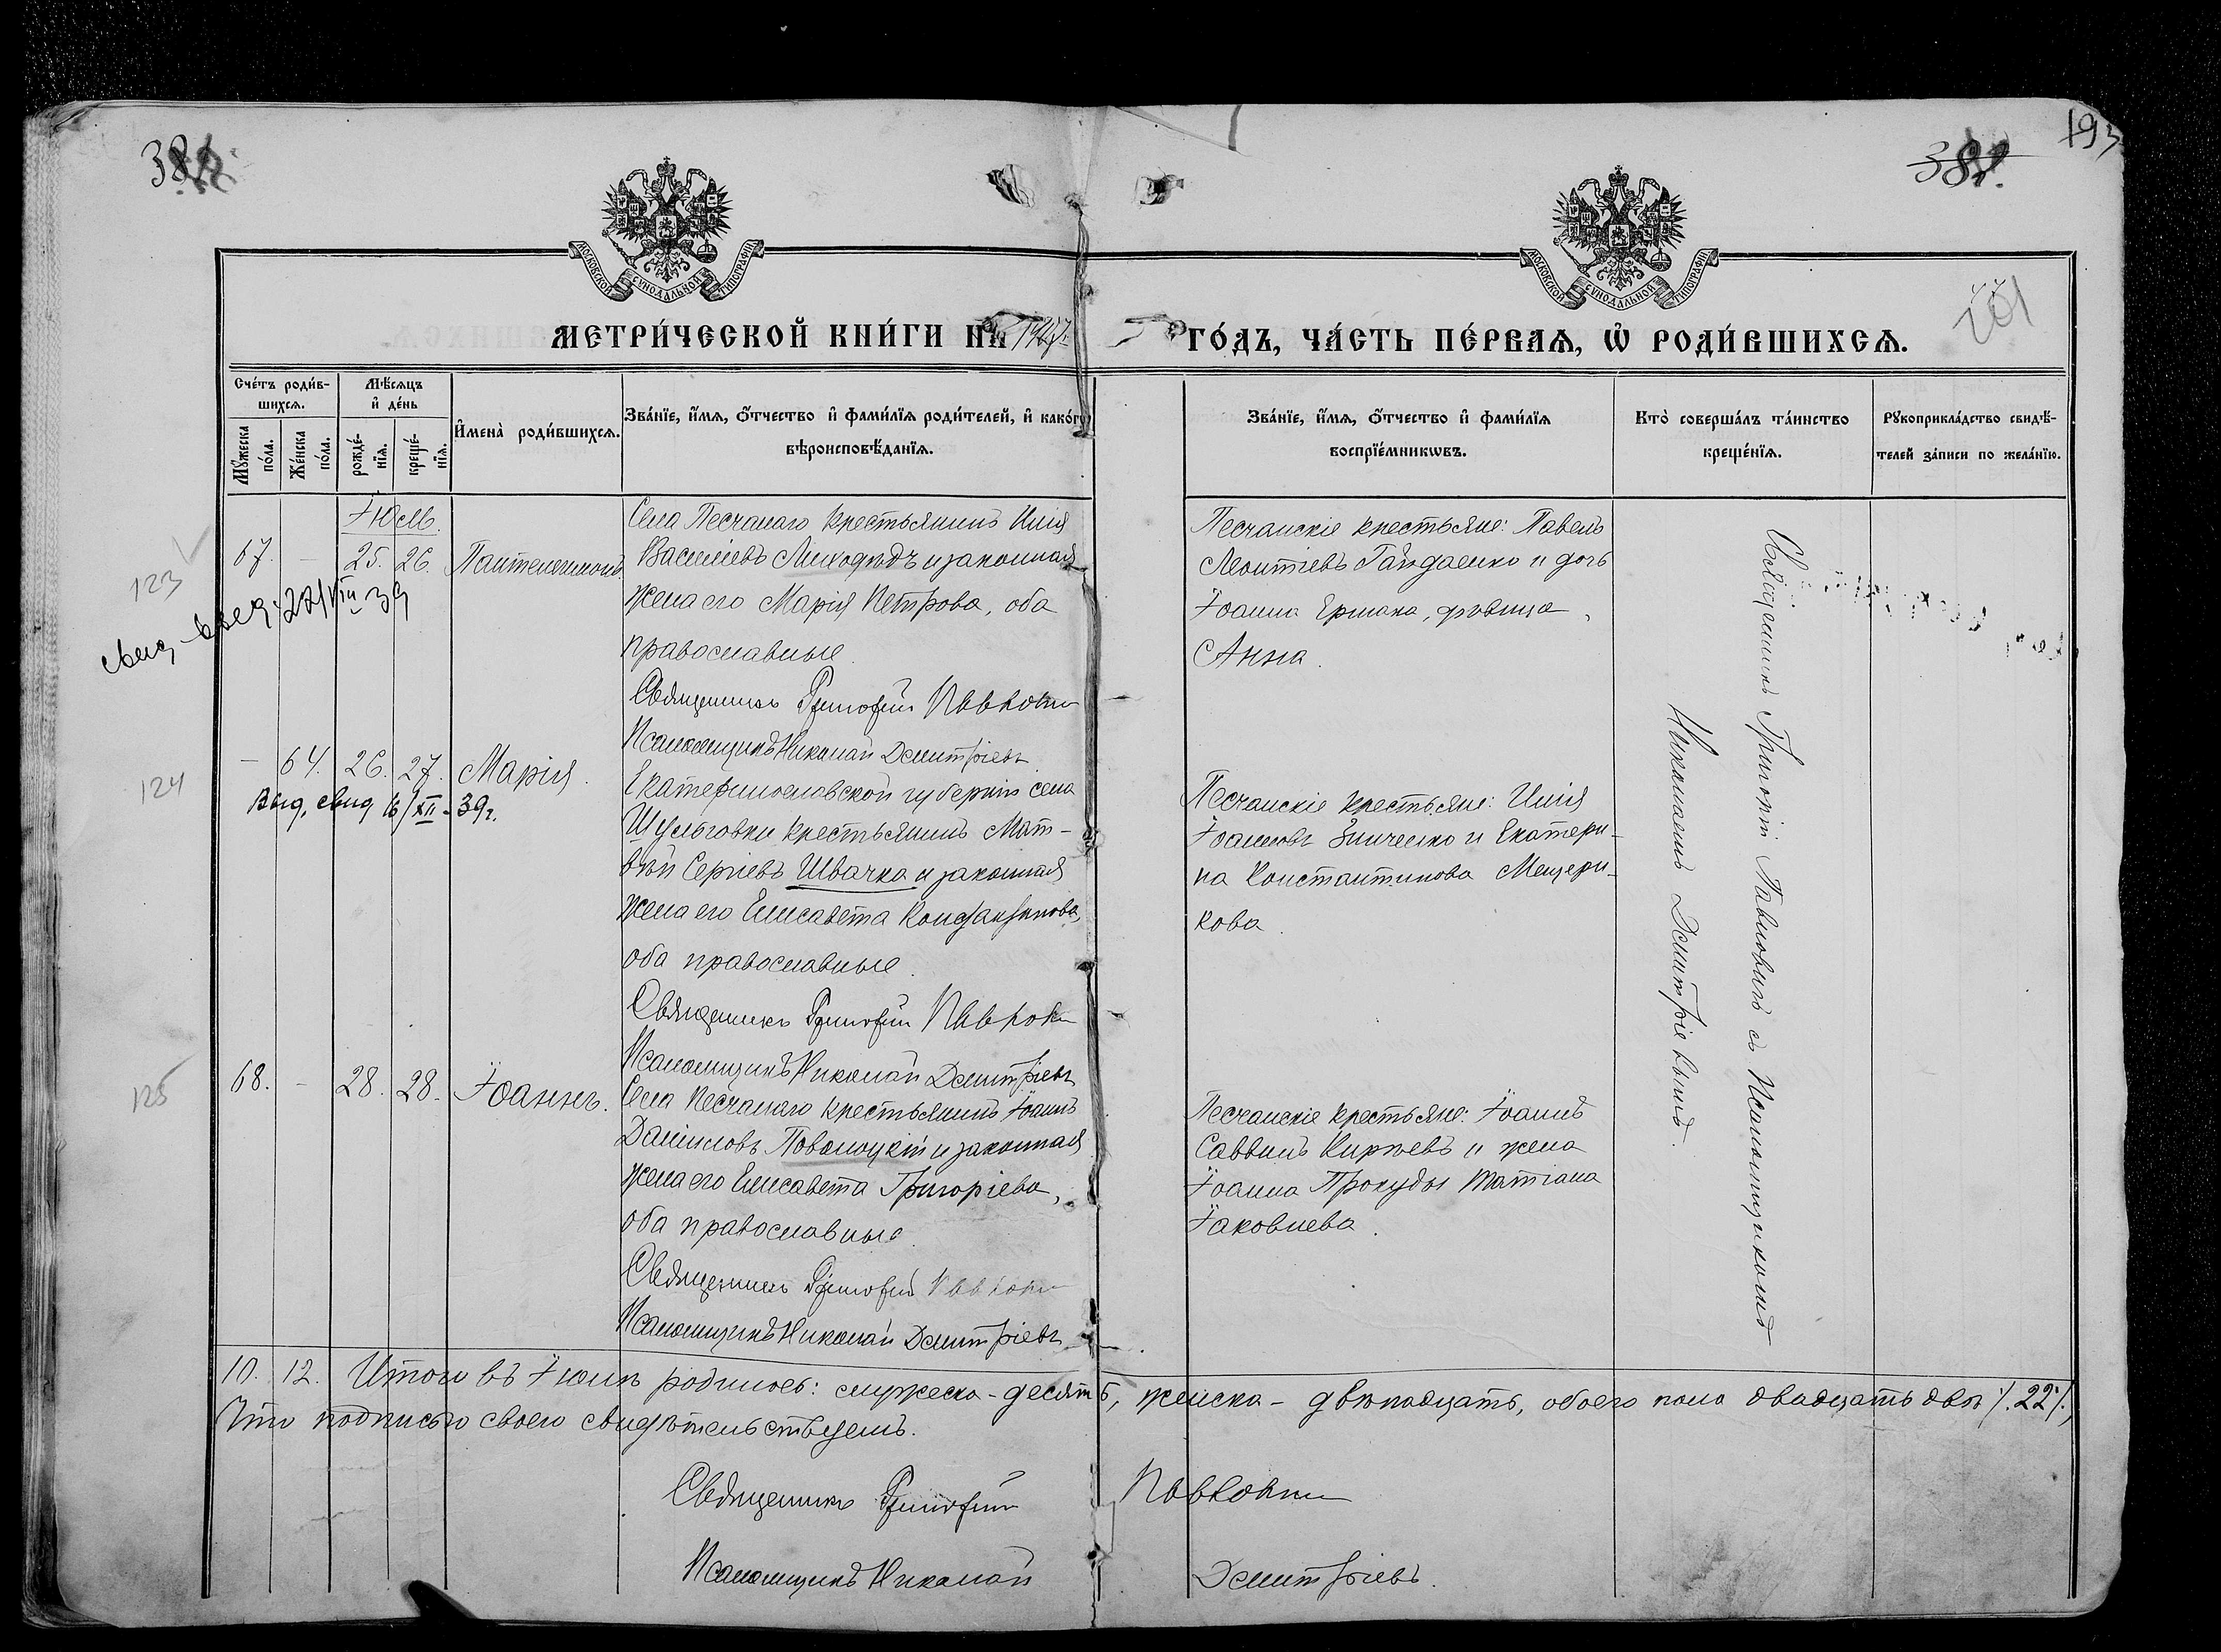 193
МОСКОВСКОЙ СѴНОДАЛЬНОЙ ТИПОГРАФІИ
МОСКОВСКОЙ СѴНОДАЛЬНОЙ ТИПОГРАФІИ
МЕТРИ́ЧЕСКОЙ КНИ́ГИ НА
ГО́ДЪ, ЧА́СТЬ ПЕ́РВАѦ, Ѡ҆ РОДИ́ВШИХСѦ.
Сче́тъ роди́в-
шихсѧ.
Мꙋ́жеска
по́ла.
Же́нска
по́ла.
Мѣ́сѧцъ
и҆ де́нь
рожде́-
нїѧ.
креще́-
нїѧ.
И҆мена̀ роди́вшихсѧ.
Зва́нїе, и҆́мѧ, ѻ҆́тчество и҆ фами́лїѧ роди́телей, и҆ како́гѡ
вѣроисповѣ́данїѧ.
Зва́нїе, и҆́мѧ, ѻ҆́тчество и҆ фами́лїѧ
воспрїе́мникѡвъ.
Кто̀ соверша́лъ та́инство
креще́нїѧ.
Рꙋкоприкла́дство свидѣ́-
телей за́писи по жела́нїю.
Іюль.
123
67. - 25. 26. Пантелеимонъ
Села Песчанаго крестьянинъ Илія
Василіевъ Лиходѣдъ и законная
жена его Марія Петрова, оба
православные.
Священникъ Григорій Павловичъ
Псаломщикъ Николай Дмитріевъ
Песчанскіе крестьяне: Павелъ
Леонтіевъ Гайдаенко и дочь
Іоанна Ермака, дѣвица
Анна.
Священникъ Григорій Павловичъ съ Псаломщикомъ
Николаемъ Дмитріевымъ.
124
- 64. 26. 27. Марія.
Выд. свид 16/XII-39г.
Екатеринославской губерніи села
Шульговки крестьянинъ Мат-
вѣй Сергіевъ Швачка и законная
жена его Елисавета Константинова,
оба православные.
Священникъ Григорій Павловичъ
Псаломщикъ Николай Дмитріевъ
Песчанскіе крестьяне: Илія
Іоанновъ Зинченко и Екатери-
на Константинова Мещери-
кова.
125
68. - 28. 28. Іоаннъ.
Села Песчанаго крестьянинъ Іоаннъ
Даниловъ Поволоцкій и законная
жена его Елисавета Григоріева,
оба православные.
Священникъ Григорій Павловичъ
Псаломщикъ Николай Дмитріевъ
Песчанскіе крестьяне: Іоаннъ
Саввинъ Кирѣевъ и жена
Іоанна Прокуды Татіана
Іаковлева.
10. 12. Итого въ Іюлѣ родилось: мужеска - десять, женска - двѣнадцать, обоего пола двадцать два /.22/.,
Что подписью своею свидѣтельствуемъ.
Священникъ Григорій Павловичъ
Псаломщикъ Николай Дмитріевъ.